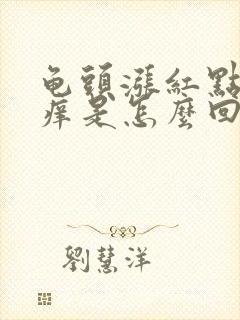 龟頭漲紅點
痒是怎麼回
劉慧洋